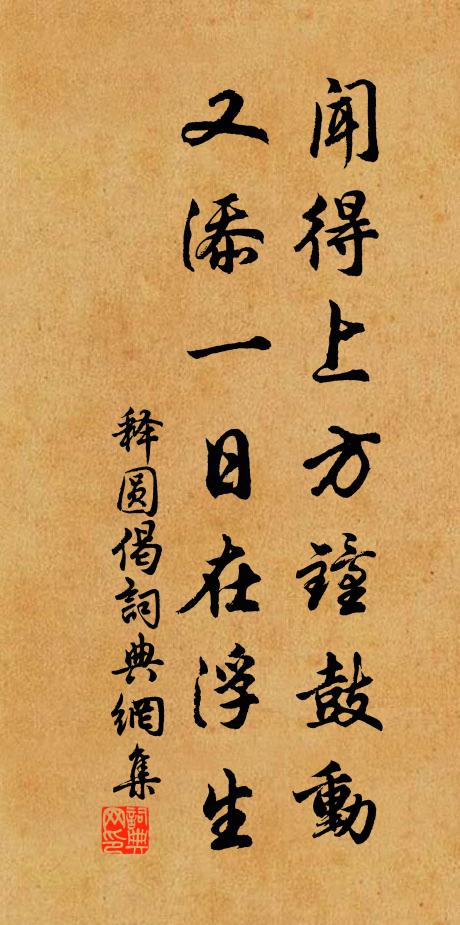 闻得上方鐘鼓動
又添一日在浮生
释圆偈詞典網集
詞典网印